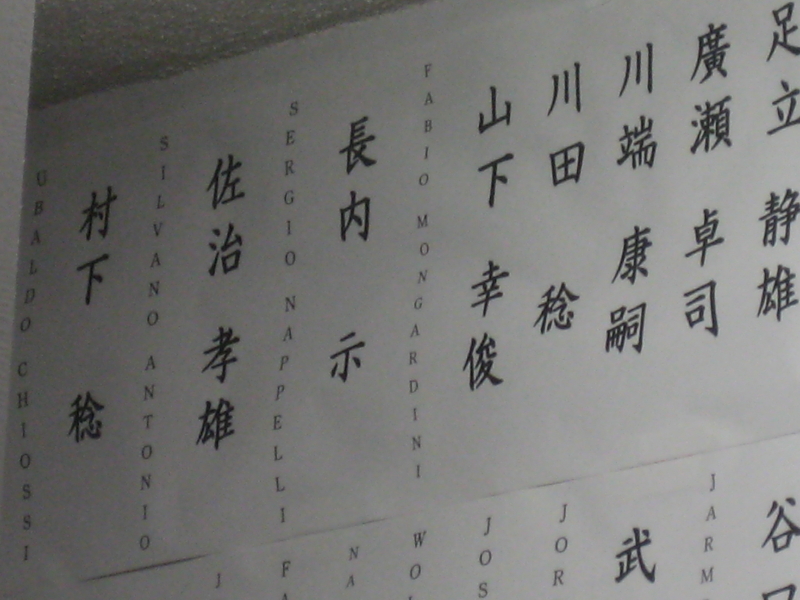 足立 静雄
廣瀬 卓司
川端 康嗣
川田 稔
山下 幸俊
FABIO MONGARDINI
長内 示
SERGIO NAPPELLI
佐治 孝雄
SILVANO ANTONIO
村下 稔
UBALDO CHIOSSI
谷
JARM
武
JOR
JOS
WO
NA
F
J